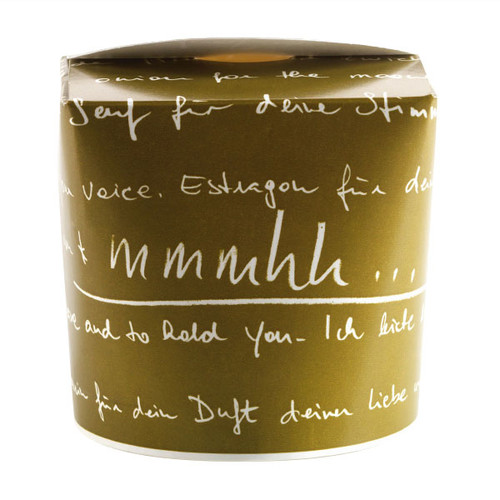 onion for the moon
Senf für deine Stimm
voice. Estragon für dei
mmmhh...
and to hold you - Ich
für dein Duft deiner Liebe